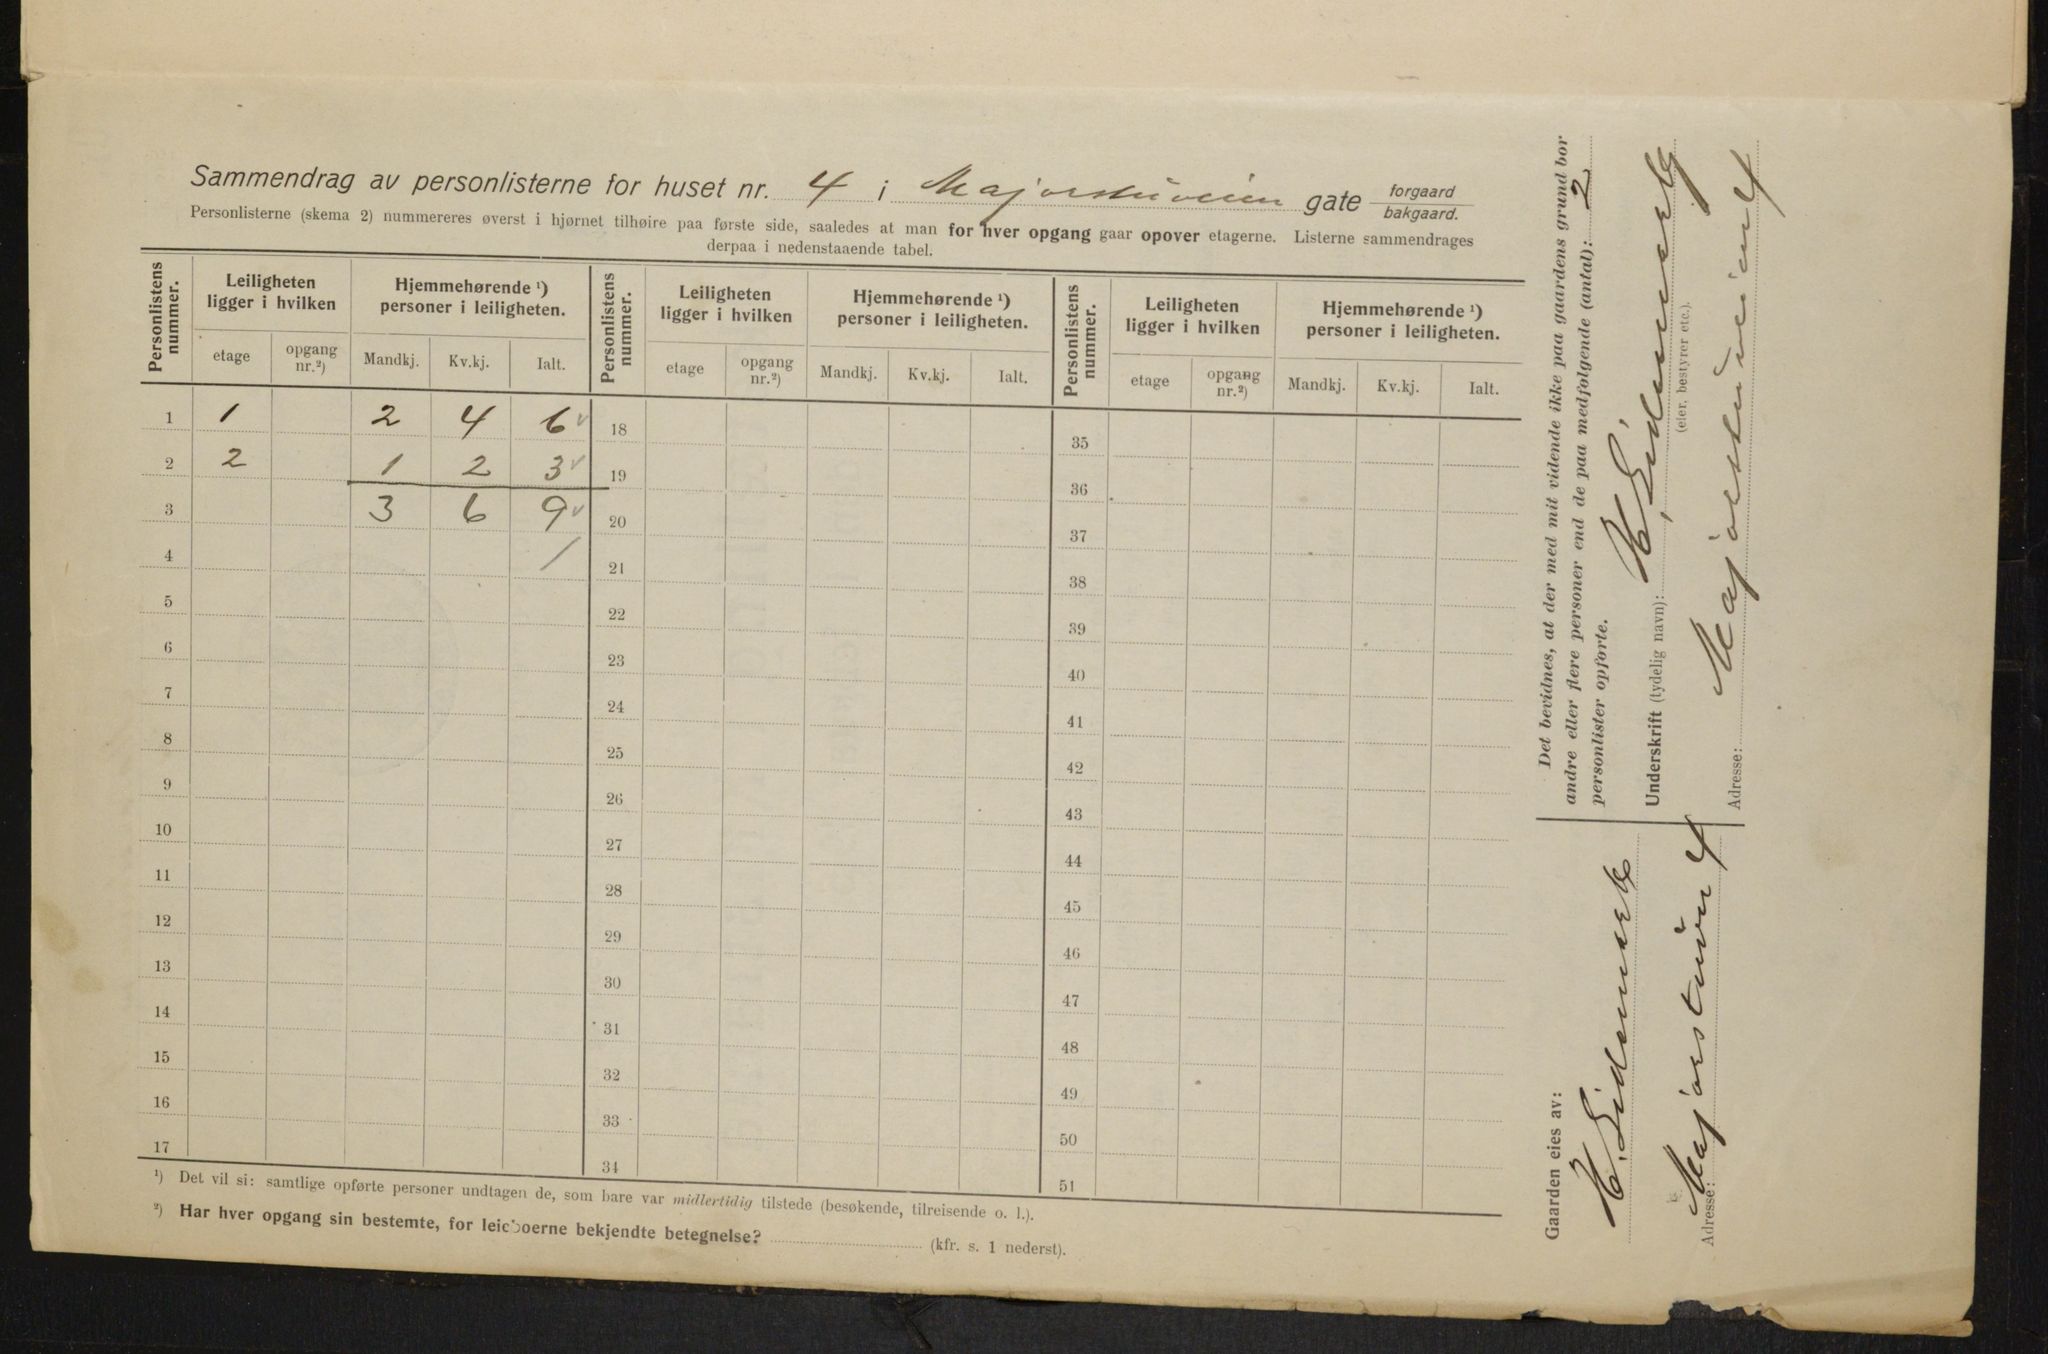 Sammendrag av personlisterne for huset nr. 4 i Majorstuveien gate forgaard bakgaard.
Personlisterne (skema 2) nummereres øverst i hjørnet tilhøire paa første side, saaledes at man for hver opgang gaar opover etagerne. Listerne sammendrages
derpaa i nedenstaaende tabel.
Personlistens nummer. Leiligheten ligger i hvilken Hjemmehørende ¹) personer i leiligheten. Personlistens nummer. Leiligheten ligger i hvilken Hjemmehørende ¹) personer i leiligheten. Personlistens nummer. Leiligheten ligger i hvilken Hjemmehørende ¹) personer i leiligheten.
etage opgang nr.²) Mandkj. Kv.kj. Ialt. etage opgang nr.²) Mandkj. Kv.kj. Ialt. etage opgang nr.²) Mandkj. Kv.kj. Ialt.
1 1 2 4 6 18 35
2 2 1 2 3 19 36
3 3 6 9 20 37
4 / 21 38
5 22 39
6 23 40
7 24 41
8 25 42
9 26 43
10 27 44
11 28 45
12 29 46
13 30 47
14 31 48
15 32 49
16 33 50
17 34 51
¹) Det vil si: samtlige opførte personer undtagen de, som bare var midlertidig tilstede (besøkende, tilreisende o. l.).
²) Har hver opgang sin bestemte, for leieboerne bekjendte betegnelse? (kfr. s. 1 nederst).
Det bevidnes, at der med mit vidende ikke paa gaardens grund bor
andre eller flere personer end de paa medfølgende (antal): 2
personlister opførte.
Underskrift (tydelig navn):
(eier, bestyrer etc.).
Adresse: Majorstuveien 4
Gaarden eies av:
Adresse: Majorstuvn 4